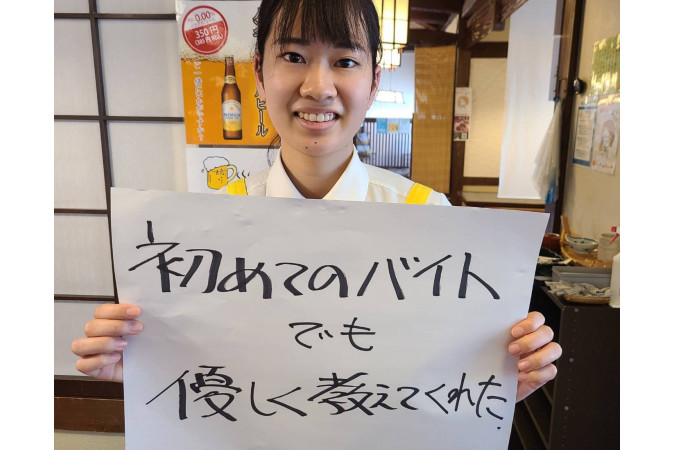 0.00%
350円
初めてのバイト
でも
優しく教えてくれた.